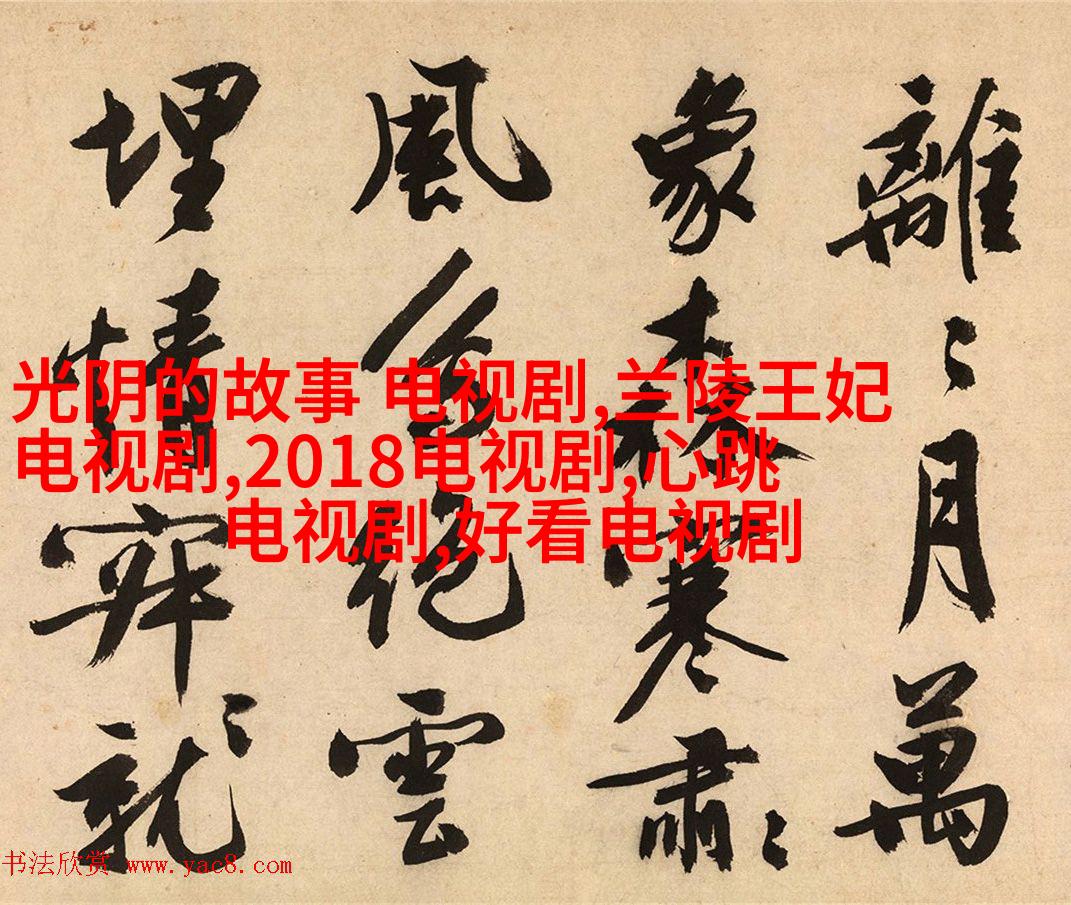 離〻月萬
象森寒肅〻
風絕雲
埋情穽〻就〻
光阴的故事 电视剧,兰陵王妃
电视剧,2018电视剧,心跳
电视剧,好看电视剧
书法欣赏 www.yac8.com